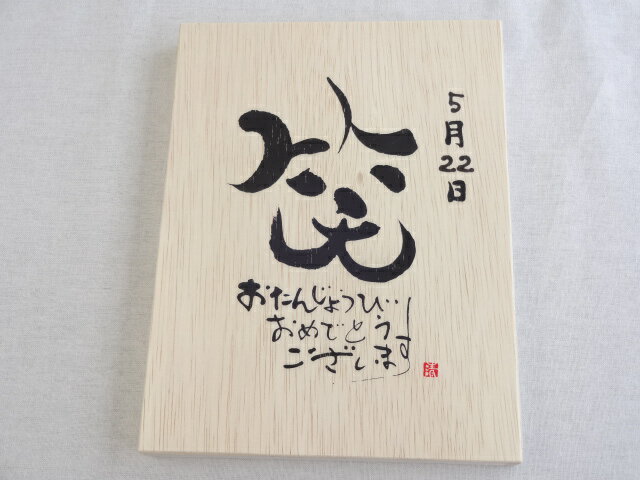 5月22日
笑
おたんじょうび
おめでとう
ございます